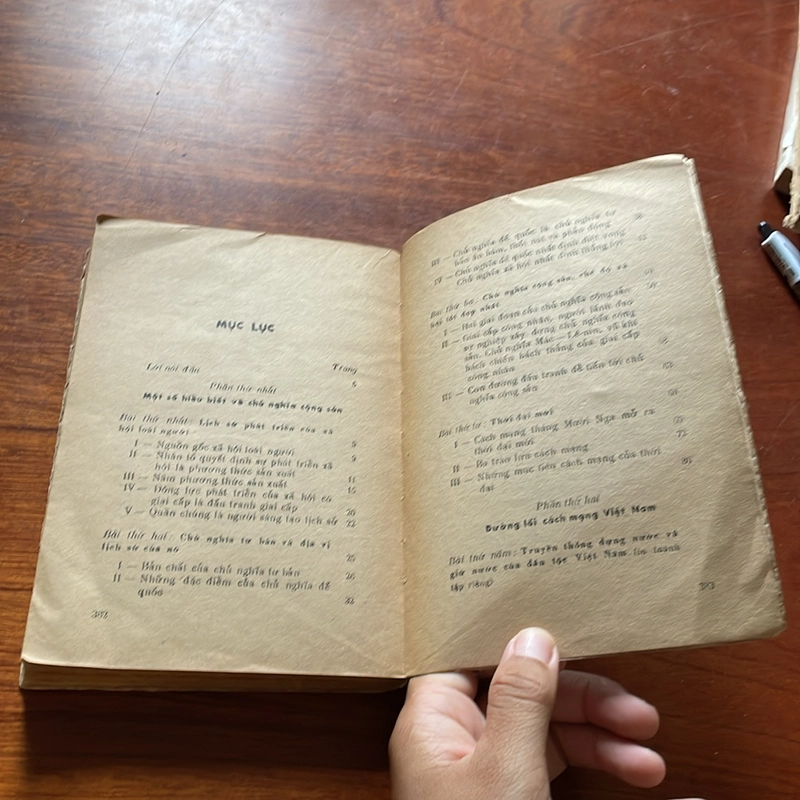 MỤC LỤC
Trang
Lời nói đầu 5
Phần thứ nhất
Một số hiểu biết về chủ nghĩa cộng sản
Bài thứ nhất: Lịch sử phát triển của xã
hội loài người 9
I — Nguồn gốc xã hội loài người 9
II — Nhân tố quyết định sự phát triển xã
hội là phương thức sản xuất 11
III — Năm phương thức sản xuất 15
IV — Động lực phát triển của xã hội có
giai cấp là đấu tranh giai cấp 20
V — Quần chúng là người sáng tạo lịch sử 22
Bài thứ hai: Chủ nghĩa tư bản và địa vị
lịch sử của nó 25
I — Bản chất của chủ nghĩa tư bản 26
II — Những đặc điểm của chủ nghĩa đế
quốc 32
382
III — Chủ nghĩa đế quốc là chủ nghĩa tư
bản ăn bám, thối nát và phản động
IV — Chủ nghĩa đế quốc nhất định diệt vong
Chủ nghĩa xã hội nhất định thắng lợi
Bài thứ ba: Chủ nghĩa cộng sản, chế độ xã
hội tốt đẹp nhất
I — Hai giai đoạn của chủ nghĩa cộng sản
II — Giai cấp công nhân, người lãnh đạo
sự nghiệp xây dựng chủ nghĩa cộng
sản. Chủ nghĩa Mác — Lê-nin, vũ khí
bách chiến bách thắng của giai cấp
công nhân
III — Con đường đấu tranh để tiến tới chủ
nghĩa cộng sản
Bài thứ tư: Thời đại mới
I — Cách mạng tháng Mười Nga mở ra
thời đại mới
II — Ba trào lưu cách mạng
III — Những mục tiêu cách mạng của thời
đại
Phần thứ hai
Đường lối cách mạng Việt Nam
Bài thứ năm: Truyền thống dựng nước và
giữ nước của dân tộc Việt Nam (in thành
tập riêng)
383